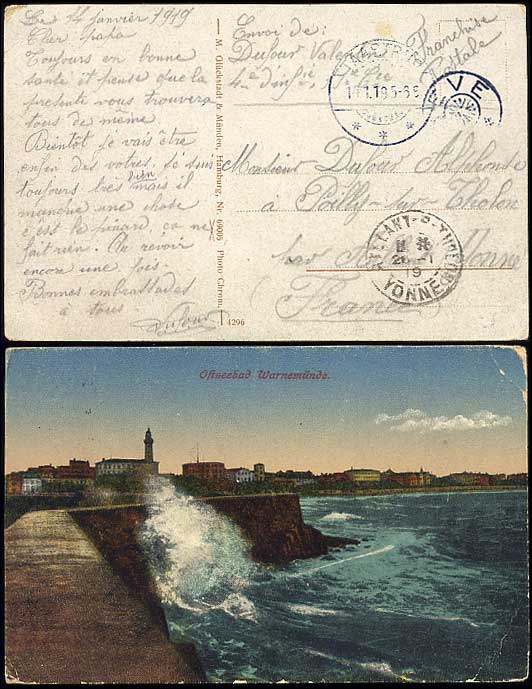 Le 4 janvier 1919
Cher papa
Toujours en bonne
santé et pense que la
présente vous trouvera
tous de même.
Bientôt je vais être
enfin des votres. Je suis
toujours très bien mais il
manque une chose
c'est le pinard, ça ne
fait rien. Au revoir
encore une fois.
Bonnes embrassades
à tous
Dufour
M. Glückstadt & Münden, Hamburg, Nr. 69005 Photo Chrom.
4296
Envoi de:
Dufour
4e
Franchise
Postale
11.1.19 5-6
VE
Monsieur Dufour Alphonse
à Poilly-sur-Tholon
par Yonne
France
YONNE
19
Ostseebad Warnemünde.